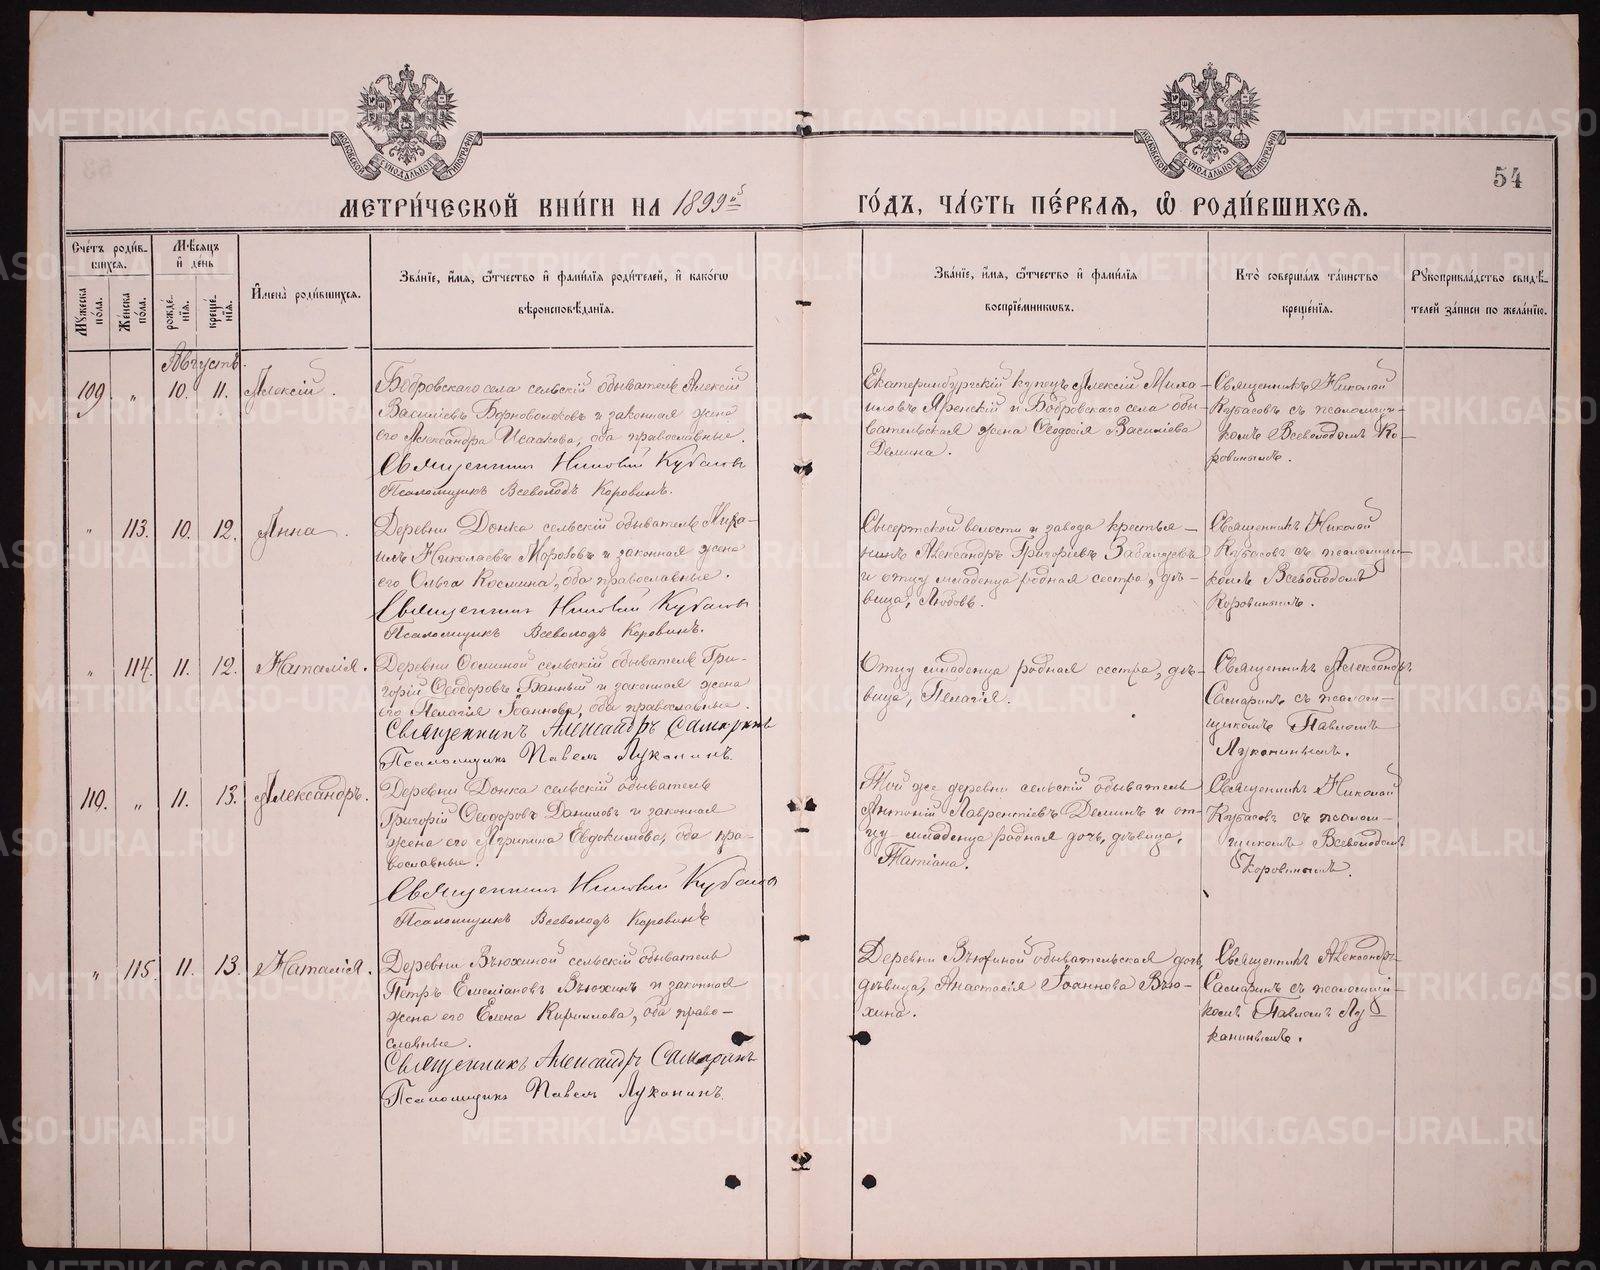 МОСКОВСКОЙ СѴНОДАЛЬНОЙ ТИПОГРАФІИ
МОСКОВСКОЙ СѴНОДАЛЬНОЙ ТИПОГРАФІИ
54
МЕТРИ́ЧЕСКОЙ КНИ́ГИ НА 1899й
ГО́ДЪ, ЧА́СТЬ ПЕ́РВАѦ, Ѡ РОДИ́ВШИХСѦ.
Сче́тъ роди́в-
шихсѧ.
Мѣ́сѧцъ
и҆ день
Мꙋжеска по́ла.
Же́нска по́ла.
рожде́нїѧ.
креще́нїѧ.
И҆мена̀ роди́вшихсѧ.
Зва́нїе, и҆́мѧ, ѻ҆́тчество и҆ фами́лїѧ роди́телей, и҆ како́гѡ
вѣроисповѣ́данїѧ.
Зва́нїе, и҆́мѧ, ѻ҆́тчество и҆ фами́лїѧ
воспрїе́мникѡвъ.
Кто̀ соверша́лъ та́инство
креще́нїѧ.
Рꙋкоприкла́дство свидѣ́-
телей за́писи по жела́нїю.
Августъ.
109. " 10. 11. Алексій.
Бобровскаго села сельскій обыватель Алексій
Василіевъ Черноволоковъ и законная жена
его Александра Исаакова, оба православные.
Священникъ Николай Кубасовъ
Псаломщикъ Всеволодъ Коровинъ.
Екатеринбургскій купецъ Алексій Миха-
иловъ Яренскій и Бобровскаго села обы-
вательская жена Ѳеодосія Василіева
Демина.
Священникъ Николай
Кубасовъ съ псаломщи-
комъ Всеволодомъ Ко-
ровинымъ.
" 113. 10. 12. Анна.
Деревни Донка сельскій обыватель Миха-
илъ Николаевъ Морозовъ и законная жена
его Ольга Космина, оба православные.
Священникъ Николай Кубасовъ
Псаломщикъ Всеволодъ Коровинъ.
Сысертской волости и завода крестья-
нинъ Александръ Григоріевъ Забалуевъ
и отцу младенца родная сестра, дѣ-
вица, Любовь.
Священникъ Николай
Кубасовъ съ псаломщи-
комъ Всеволодомъ
Коровинымъ.
" 114. 11. 12. Наталія.
Деревни Ѳоминой сельскій обыватель Гри-
горій Ѳеодоровъ Банный и законная жена
его Пелагія Іоаннова, оба православные.
Священникъ Александръ Самаринъ
Псаломщикъ Павелъ Луканинъ.
Отцу младенца родная сестра, дѣ-
вица, Пелагія.
Священникъ Александръ
Самаринъ съ псалом-
щикомъ Павломъ
Луканинымъ.
110. " 11. 13. Александръ.
Деревни Донка сельскій обыватель
Григорій Ѳеодоровъ Даниловъ и законная
жена его Агрипина Евдокимова, оба пра-
вославные.
Священникъ Николай Кубасовъ
Псаломщикъ Всеволодъ Коровинъ
Той же деревни сельскій обыватель
Антоній Лаврентіевъ Деминъ и от-
цу младенца родная дочь, дѣвица,
Татіана.
Священникъ Николай
Кубасовъ съ псалом-
щикомъ Всеволодомъ
Коровинымъ.
" 115. 11. 13. Наталія.
Деревни Вьюхиной сельскій обыватель
Петръ Емеліановъ Вьюхинъ и законная
жена его Елена Кирилова, оба право-
славные.
Священникъ Александръ Самаринъ
Псаломщикъ Павелъ Луканинъ.
Деревни Вьюхиной обывательская дочь,
дѣвица, Анастасія Іоаннова Вью-
хина.
Священникъ Александръ
Самаринъ съ псаломщи-
комъ Павломъ Лу-
канинымъ.
METRIKI.GASO-URAL.RU